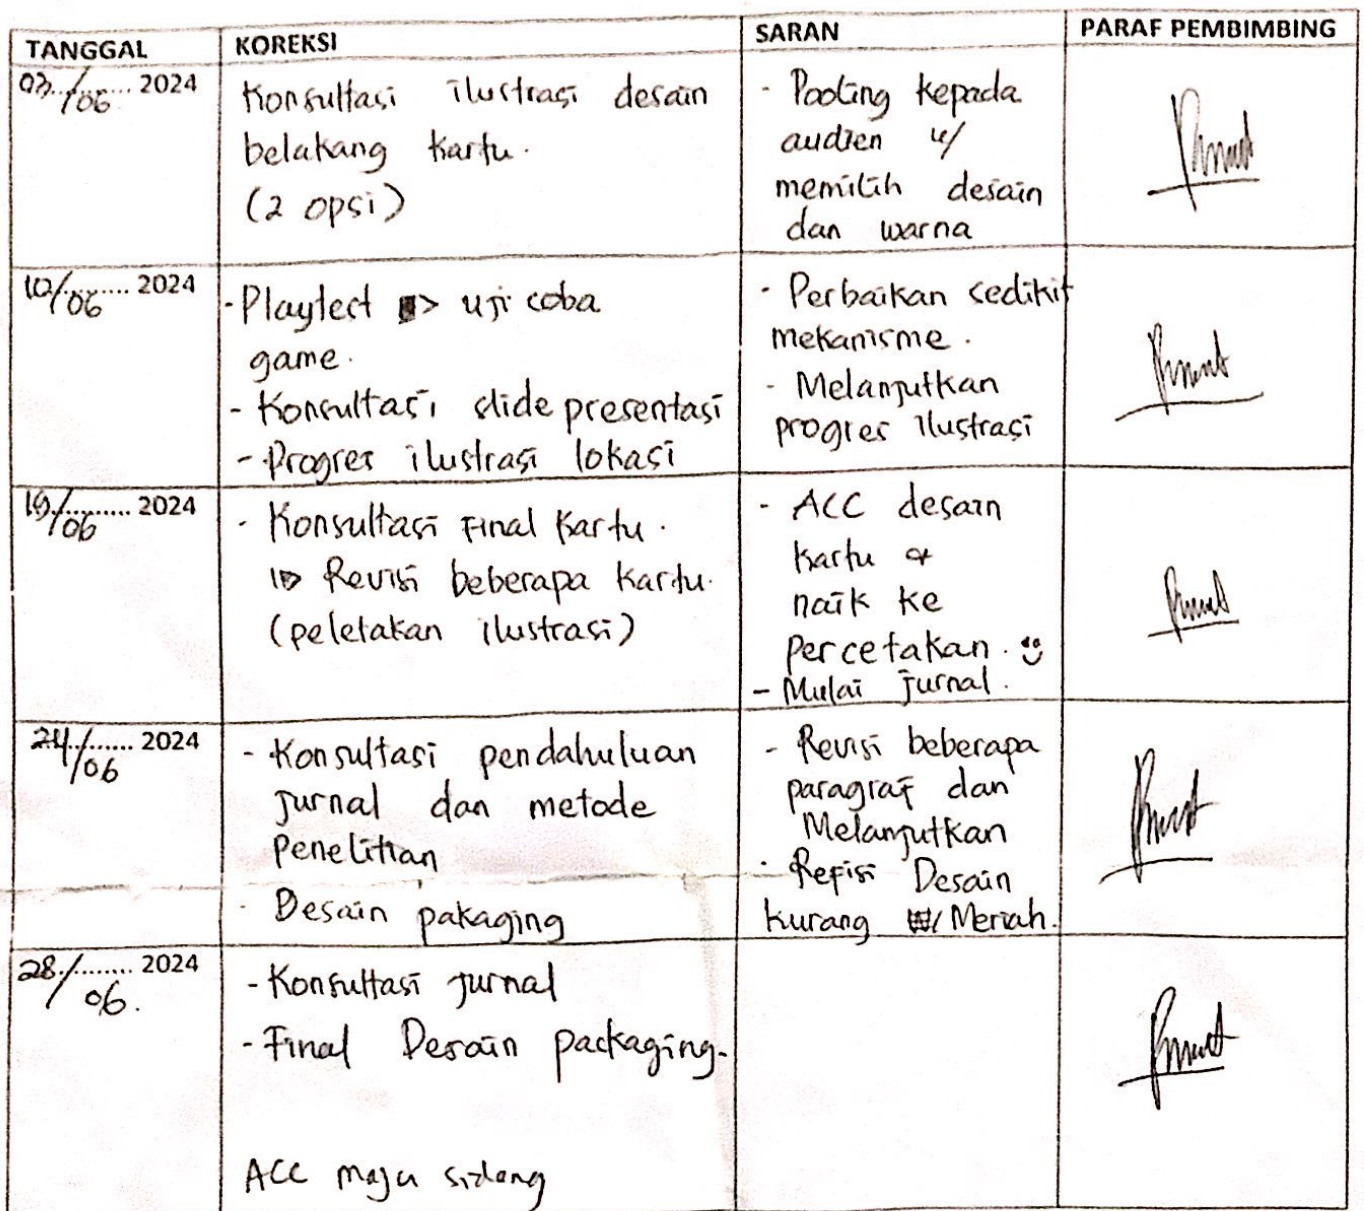 TANGGAL KOREKSI SARAN PARAF PEMBIMBING
03/06 2024
Konsultasi ilustrasi desain
belakang kartu.
(2 opsi)
- Pooling kepada
audien u/
memilih desain
dan warna
10/06 2024
- Playtest => uji coba
game.
- Konsultasi slide presentasi
- Progres ilustrasi lokasi
- Perbaikan sedikit
mekanisme.
- Melanjutkan
progres ilustrasi
19/06 2024
- Konsultasi Final Kartu.
=> Revisi beberapa kartu.
(peletakan ilustrasi)
- ACC desain
kartu &
naik ke
percetakan. :)
- Mulai jurnal.
24/06 2024
- Konsultasi pendahuluan
jurnal dan metode
penelitian
- Desain pakaging
- Revisi beberapa
paragraf dan
Melanjutkan
- Refisi Desain
kurang Meriah.
28/06. 2024
- Konsultasi jurnal
- Final Desain packaging.
ACC maju sidang